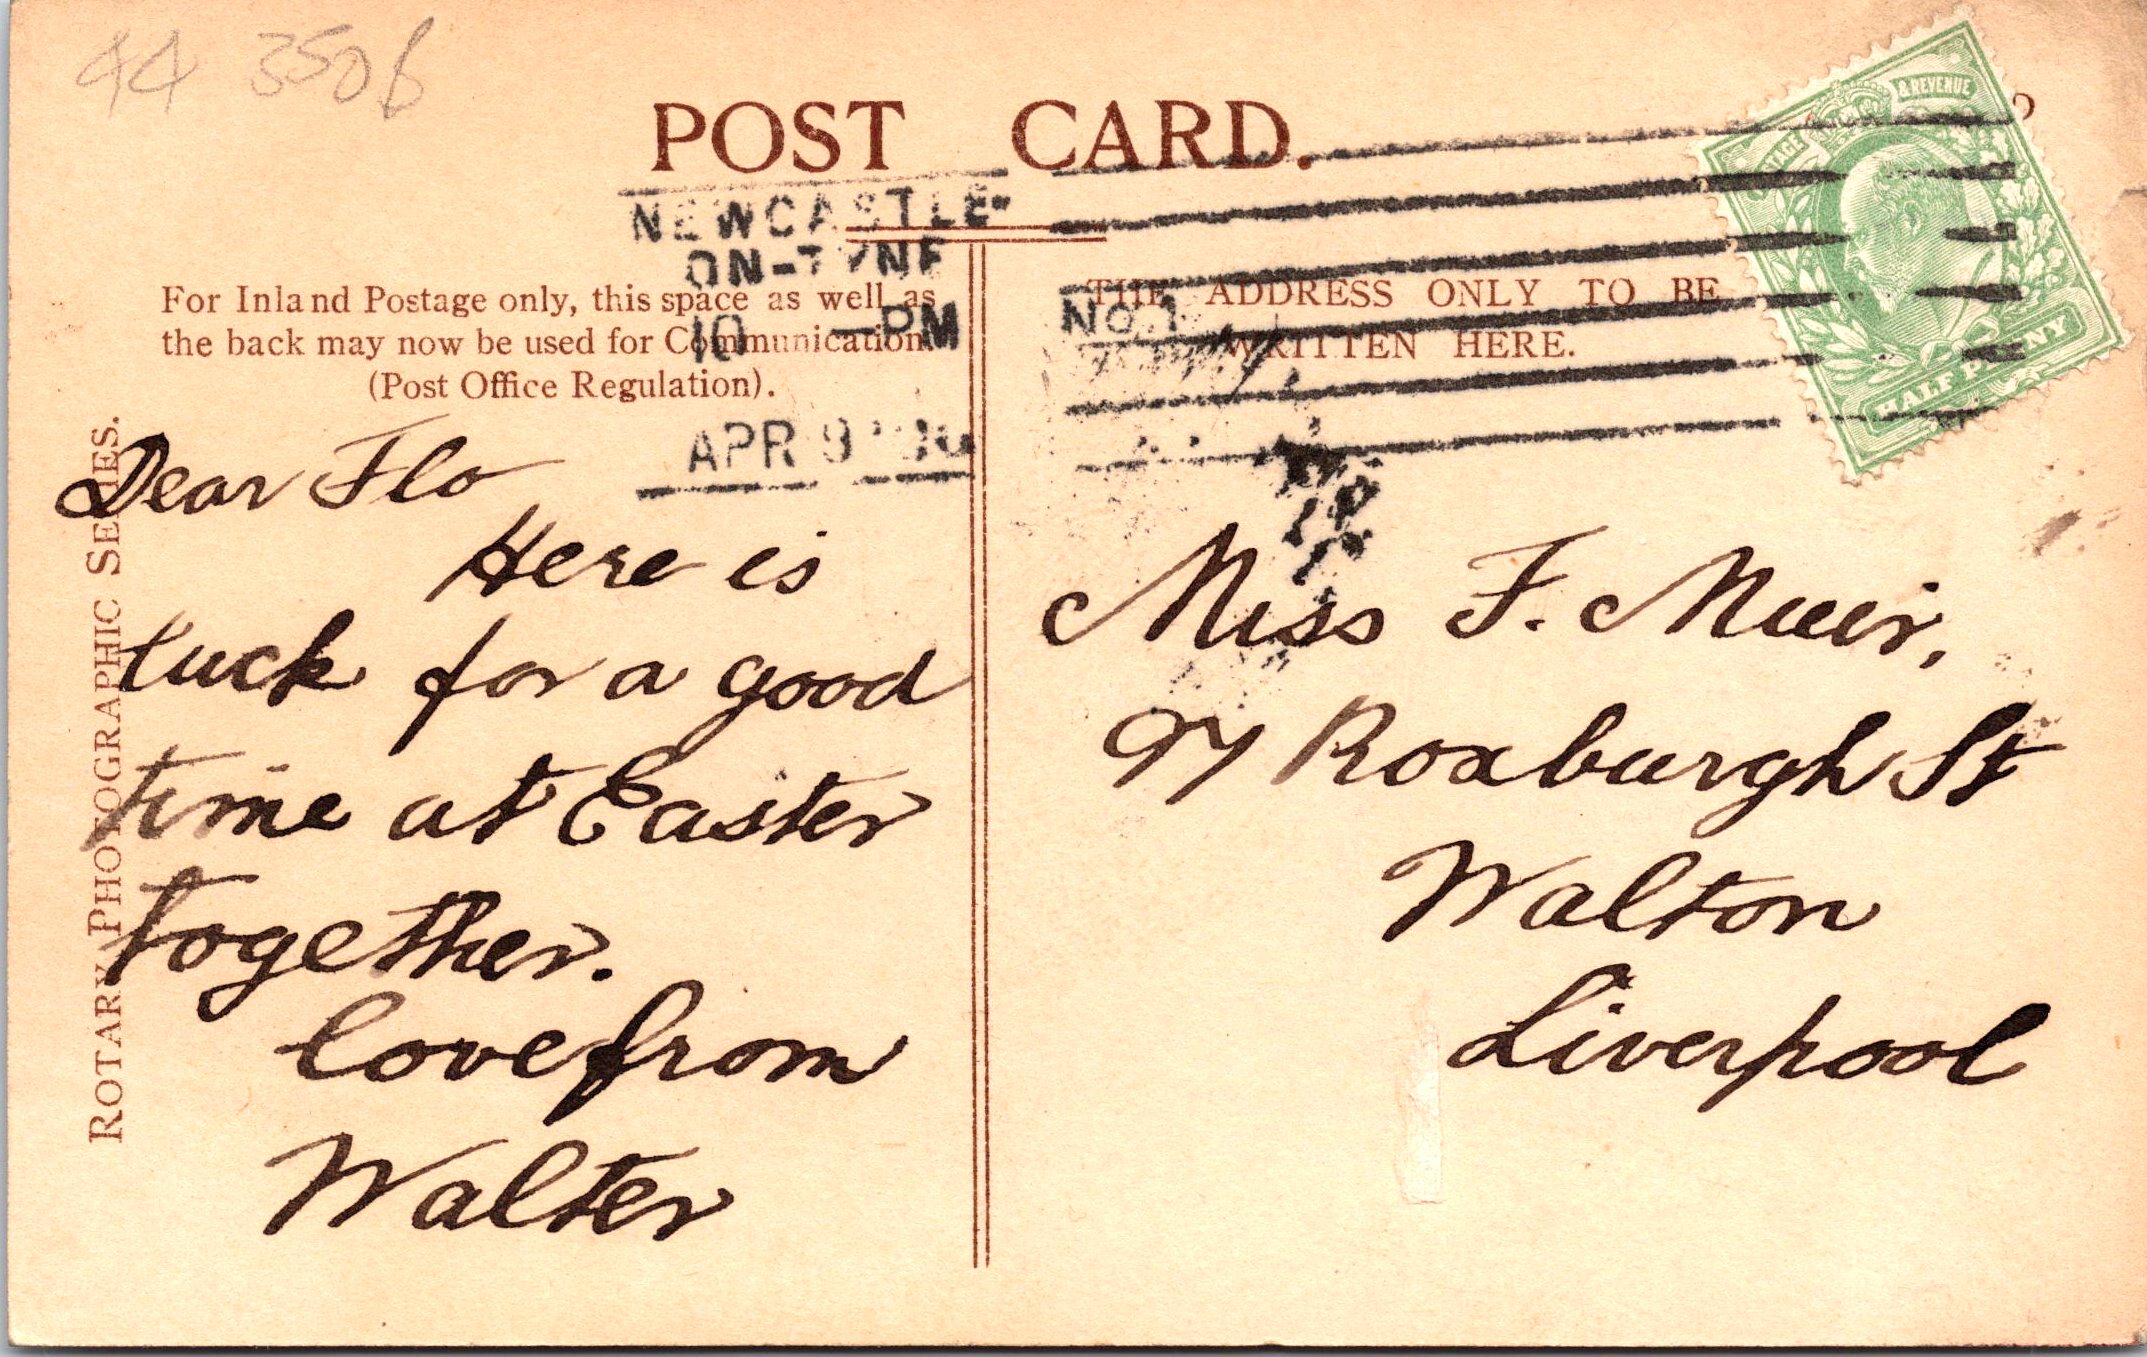 44 3506
POST CARD.
NEWCASTLE-
ON-TYNE
10 -PM
APR 9
No. 1
& REVENUE
POSTAGE
HALF PENNY
For Inland Postage only, this space as well as
the back may now be used for Communication.
(Post Office Regulation).
THE ADDRESS ONLY TO BE
WRITTEN HERE.
ROTARY PHOTOGRAPHIC SERIES.
Dear Flo
Here is
luck for a good
time at Easter
together.
love from
Walter
Miss F. Muir,
97 Roxburgh St
Walton
Liverpool